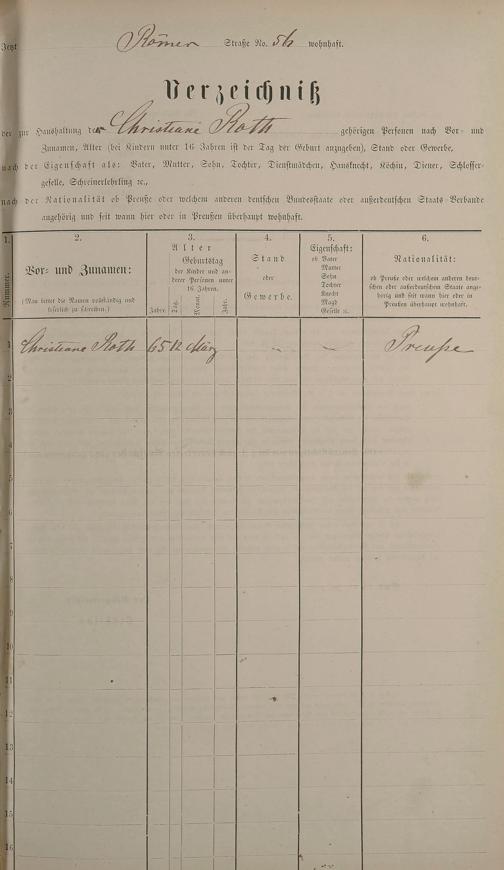 Jetzt Römer Straße No. 56 wohnhaft.
Verzeichniß
der zur Haushaltung der Christiane Roth gehörigen Personen nach Vor- und
Zunamen, Alter (bei Kindern unter 16 Jahren ist der Tag der Geburt anzugeben), Stand oder Gewerbe,
nach der Eigenschaft als: Vater, Mutter, Sohn, Tochter, Dienstmädchen, Hausknecht, Köchin, Diener, Schlosser-
geselle, Schreinerlehrling ec.,
nach der Nationalität ob Preuße oder welchem anderen deutschen Bundesstaate oder außerdeutschen Staats-Verbande
angehörig und seit wann hier oder in Preußen überhaupt wohnhaft.
1.
Nummer.
2.
Vor- und Zunamen:
(Man bittet die Namen vollständig und
leserlich zu schreiben.)
3.
Alter
Geburtstag
der Kinder und an-
derer Personen unter
16 Jahren.
Jahre.
Tag.
Monat.
Jahr.
4.
Stand
oder
Gewerbe.
5.
Eigenschaft:
ob Vater
Mutter
Sohn
Tochter
Knecht
Magd
Geselle ec.
6.
Nationalität:
ob Preuße oder welchem anderen deut-
schen oder außerdeutschen Staate ange-
hörig und seit wann hier oder in
Preußen überhaupt wohnhaft.
1 Christiane Roth 65 12 März – – Preuße
2
3
4
5
6
7
8
9
10
11
12
13
14
15
16